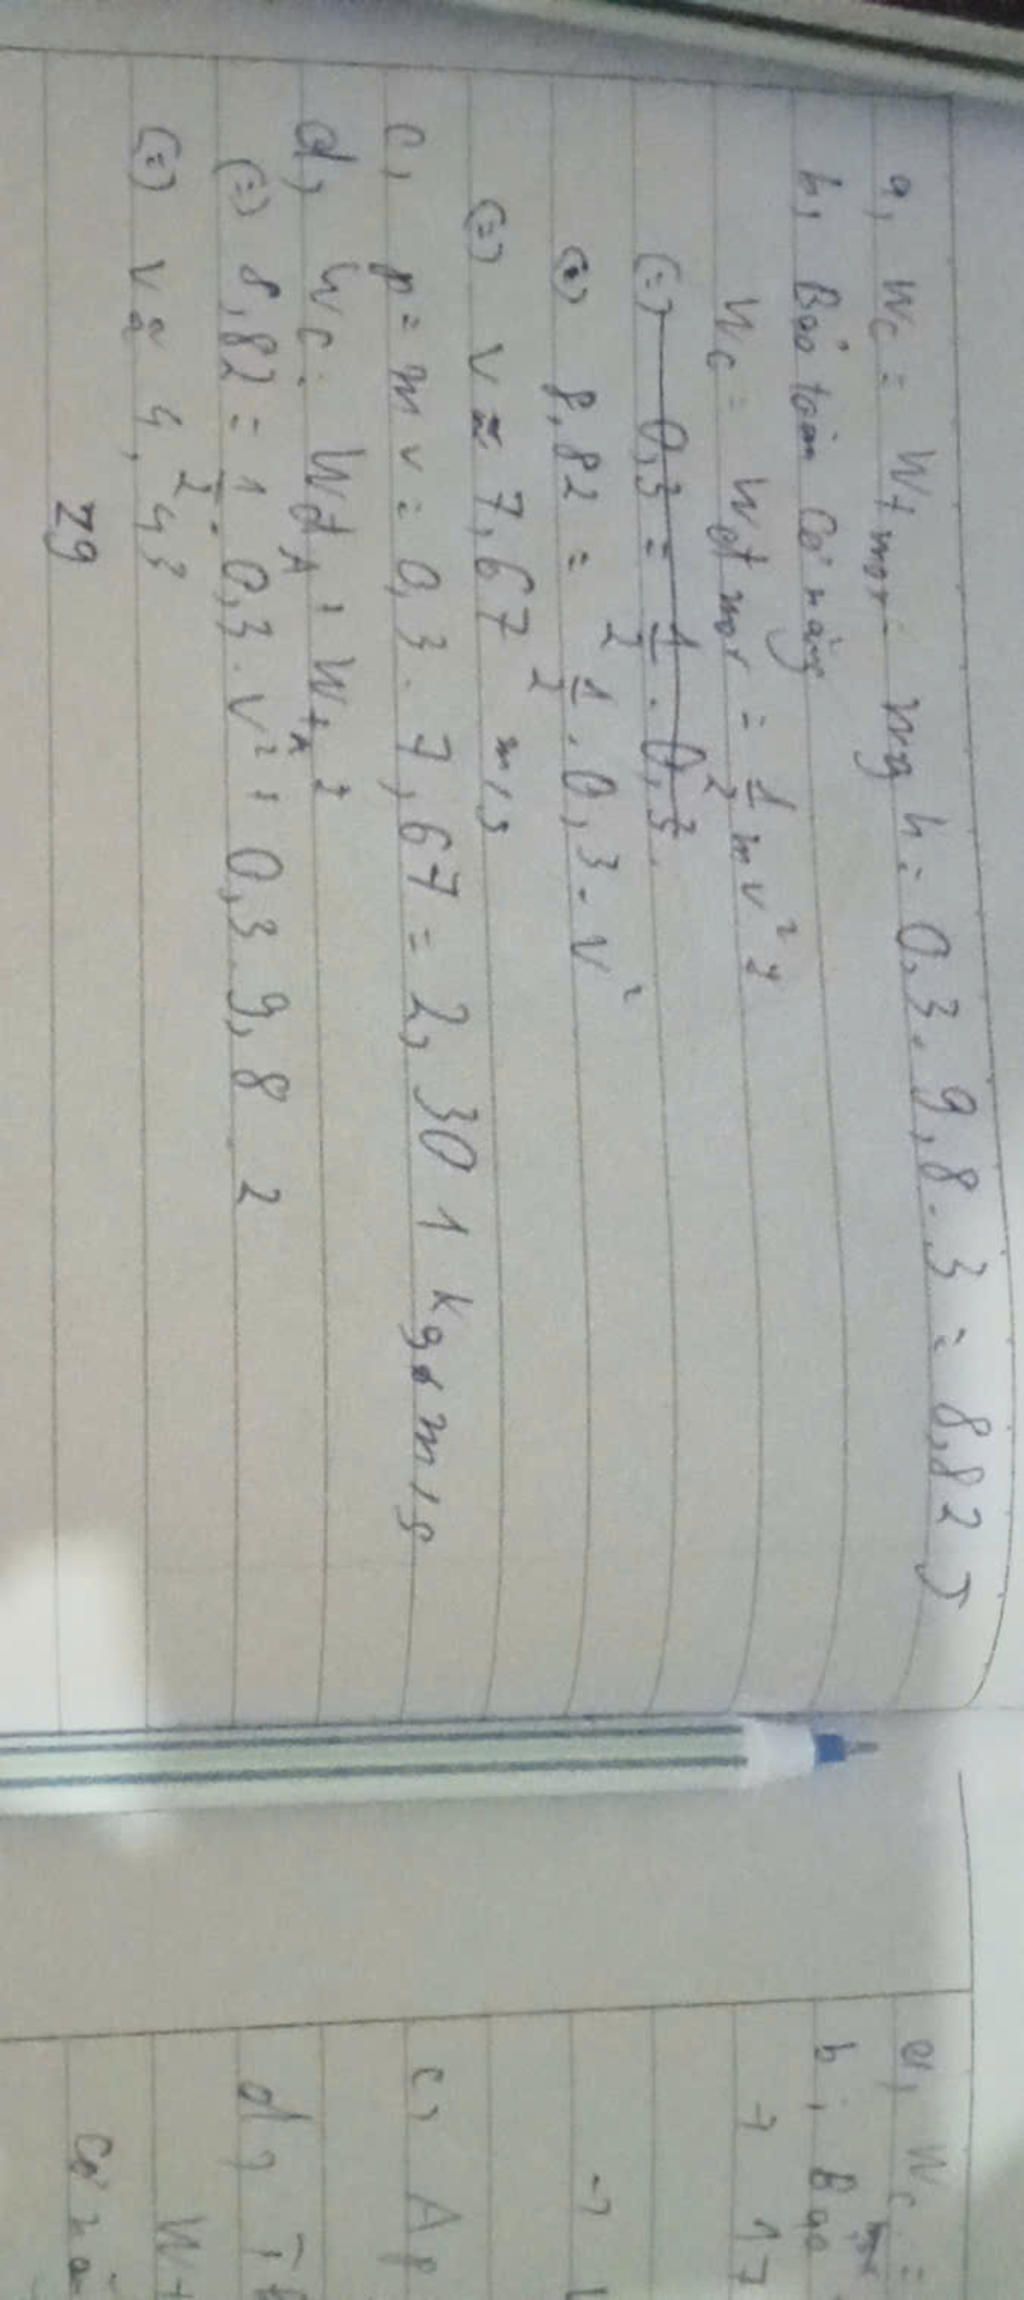 a, Wc = Wt max = mgh = 0,3 . 9,8 . 3 = 8,82 J
b, Bảo toàn Cơ năng
Wc = Wđ max = 1/2 mv²
(=) 0,3 = 1/2 . 0,3
(=) 8,82 = 1/2 . 0,3 . v²
(=) v ≈ 7,67 m/s
c, p = mv = 0,3 . 7,67 = 2,301 kg.m/s
d, Wc = WđA + WtA
(=) 8,82 = 1/2 . 0,3 . v² + 0,3 . 9,8 . 2
(=) v ≈ 4,43
Zg
a, Wc max =
b, Bảo
c, Ap
d,
Wt
cơ nă